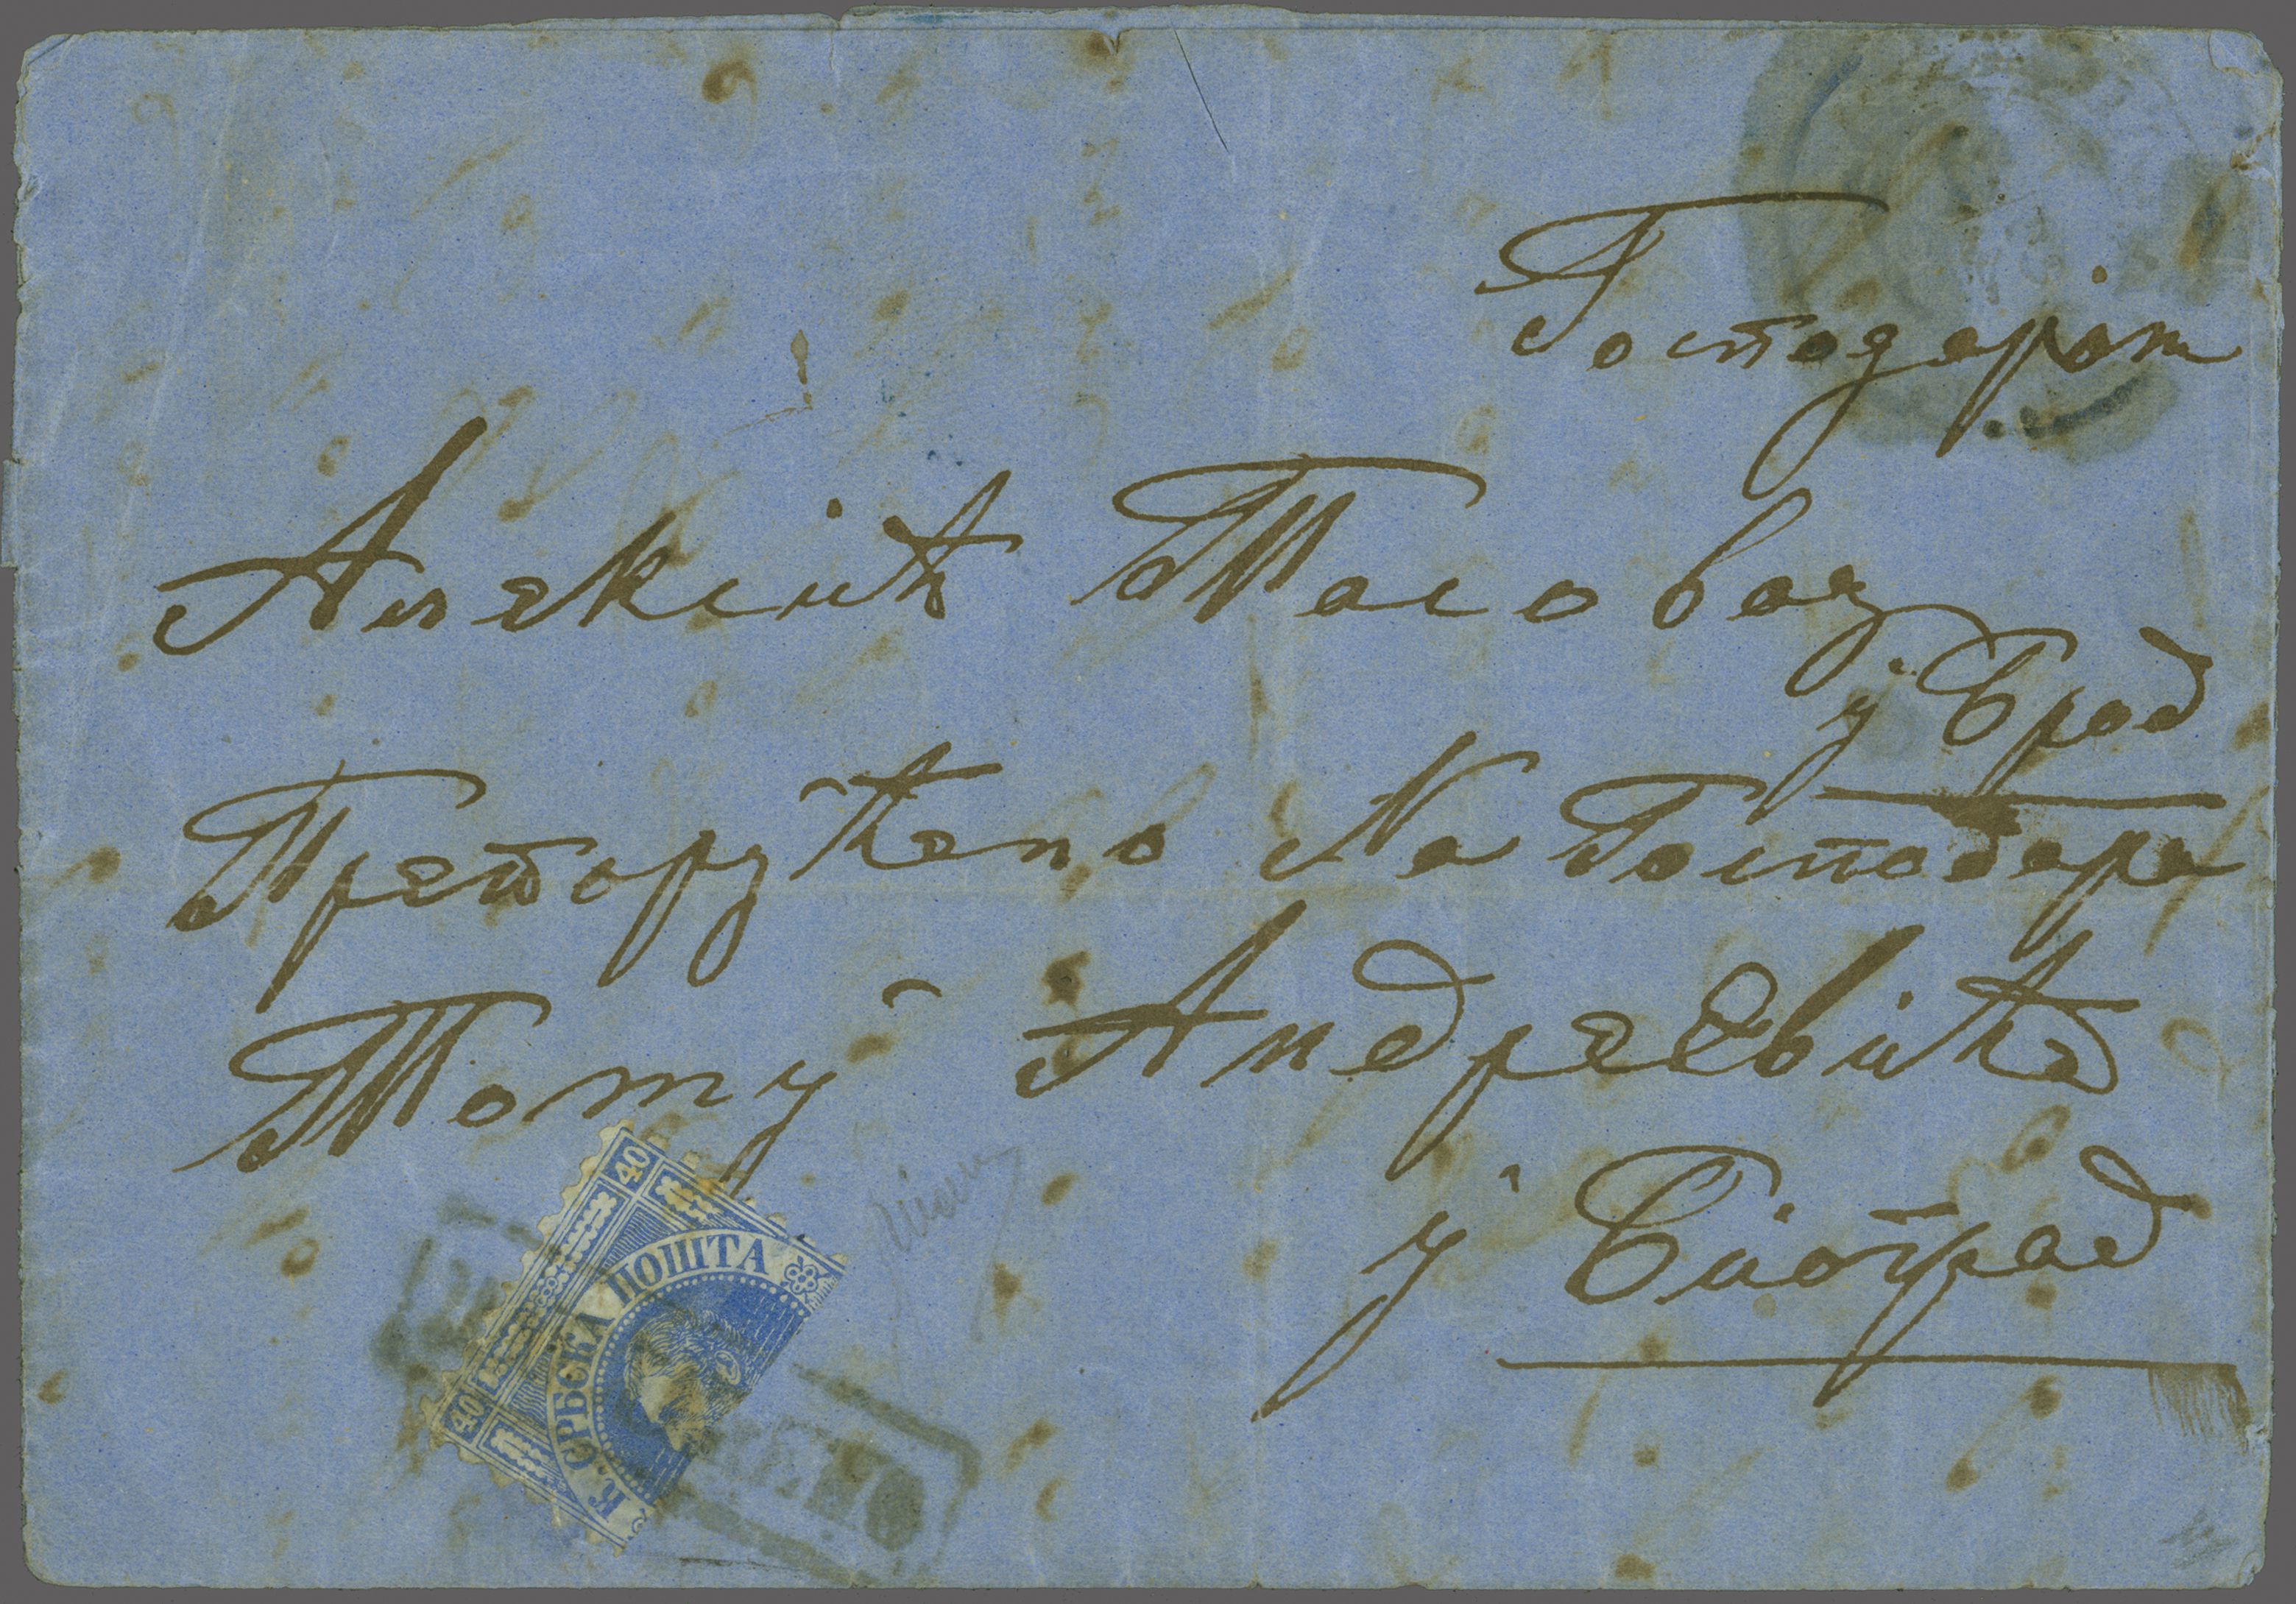 Господарȣ
Алекси Тасовцу
у Брод
Препоруѣено На Господара
Тому Андреевића
у Биоград
40
К. СРБСКА ПОШТА
40